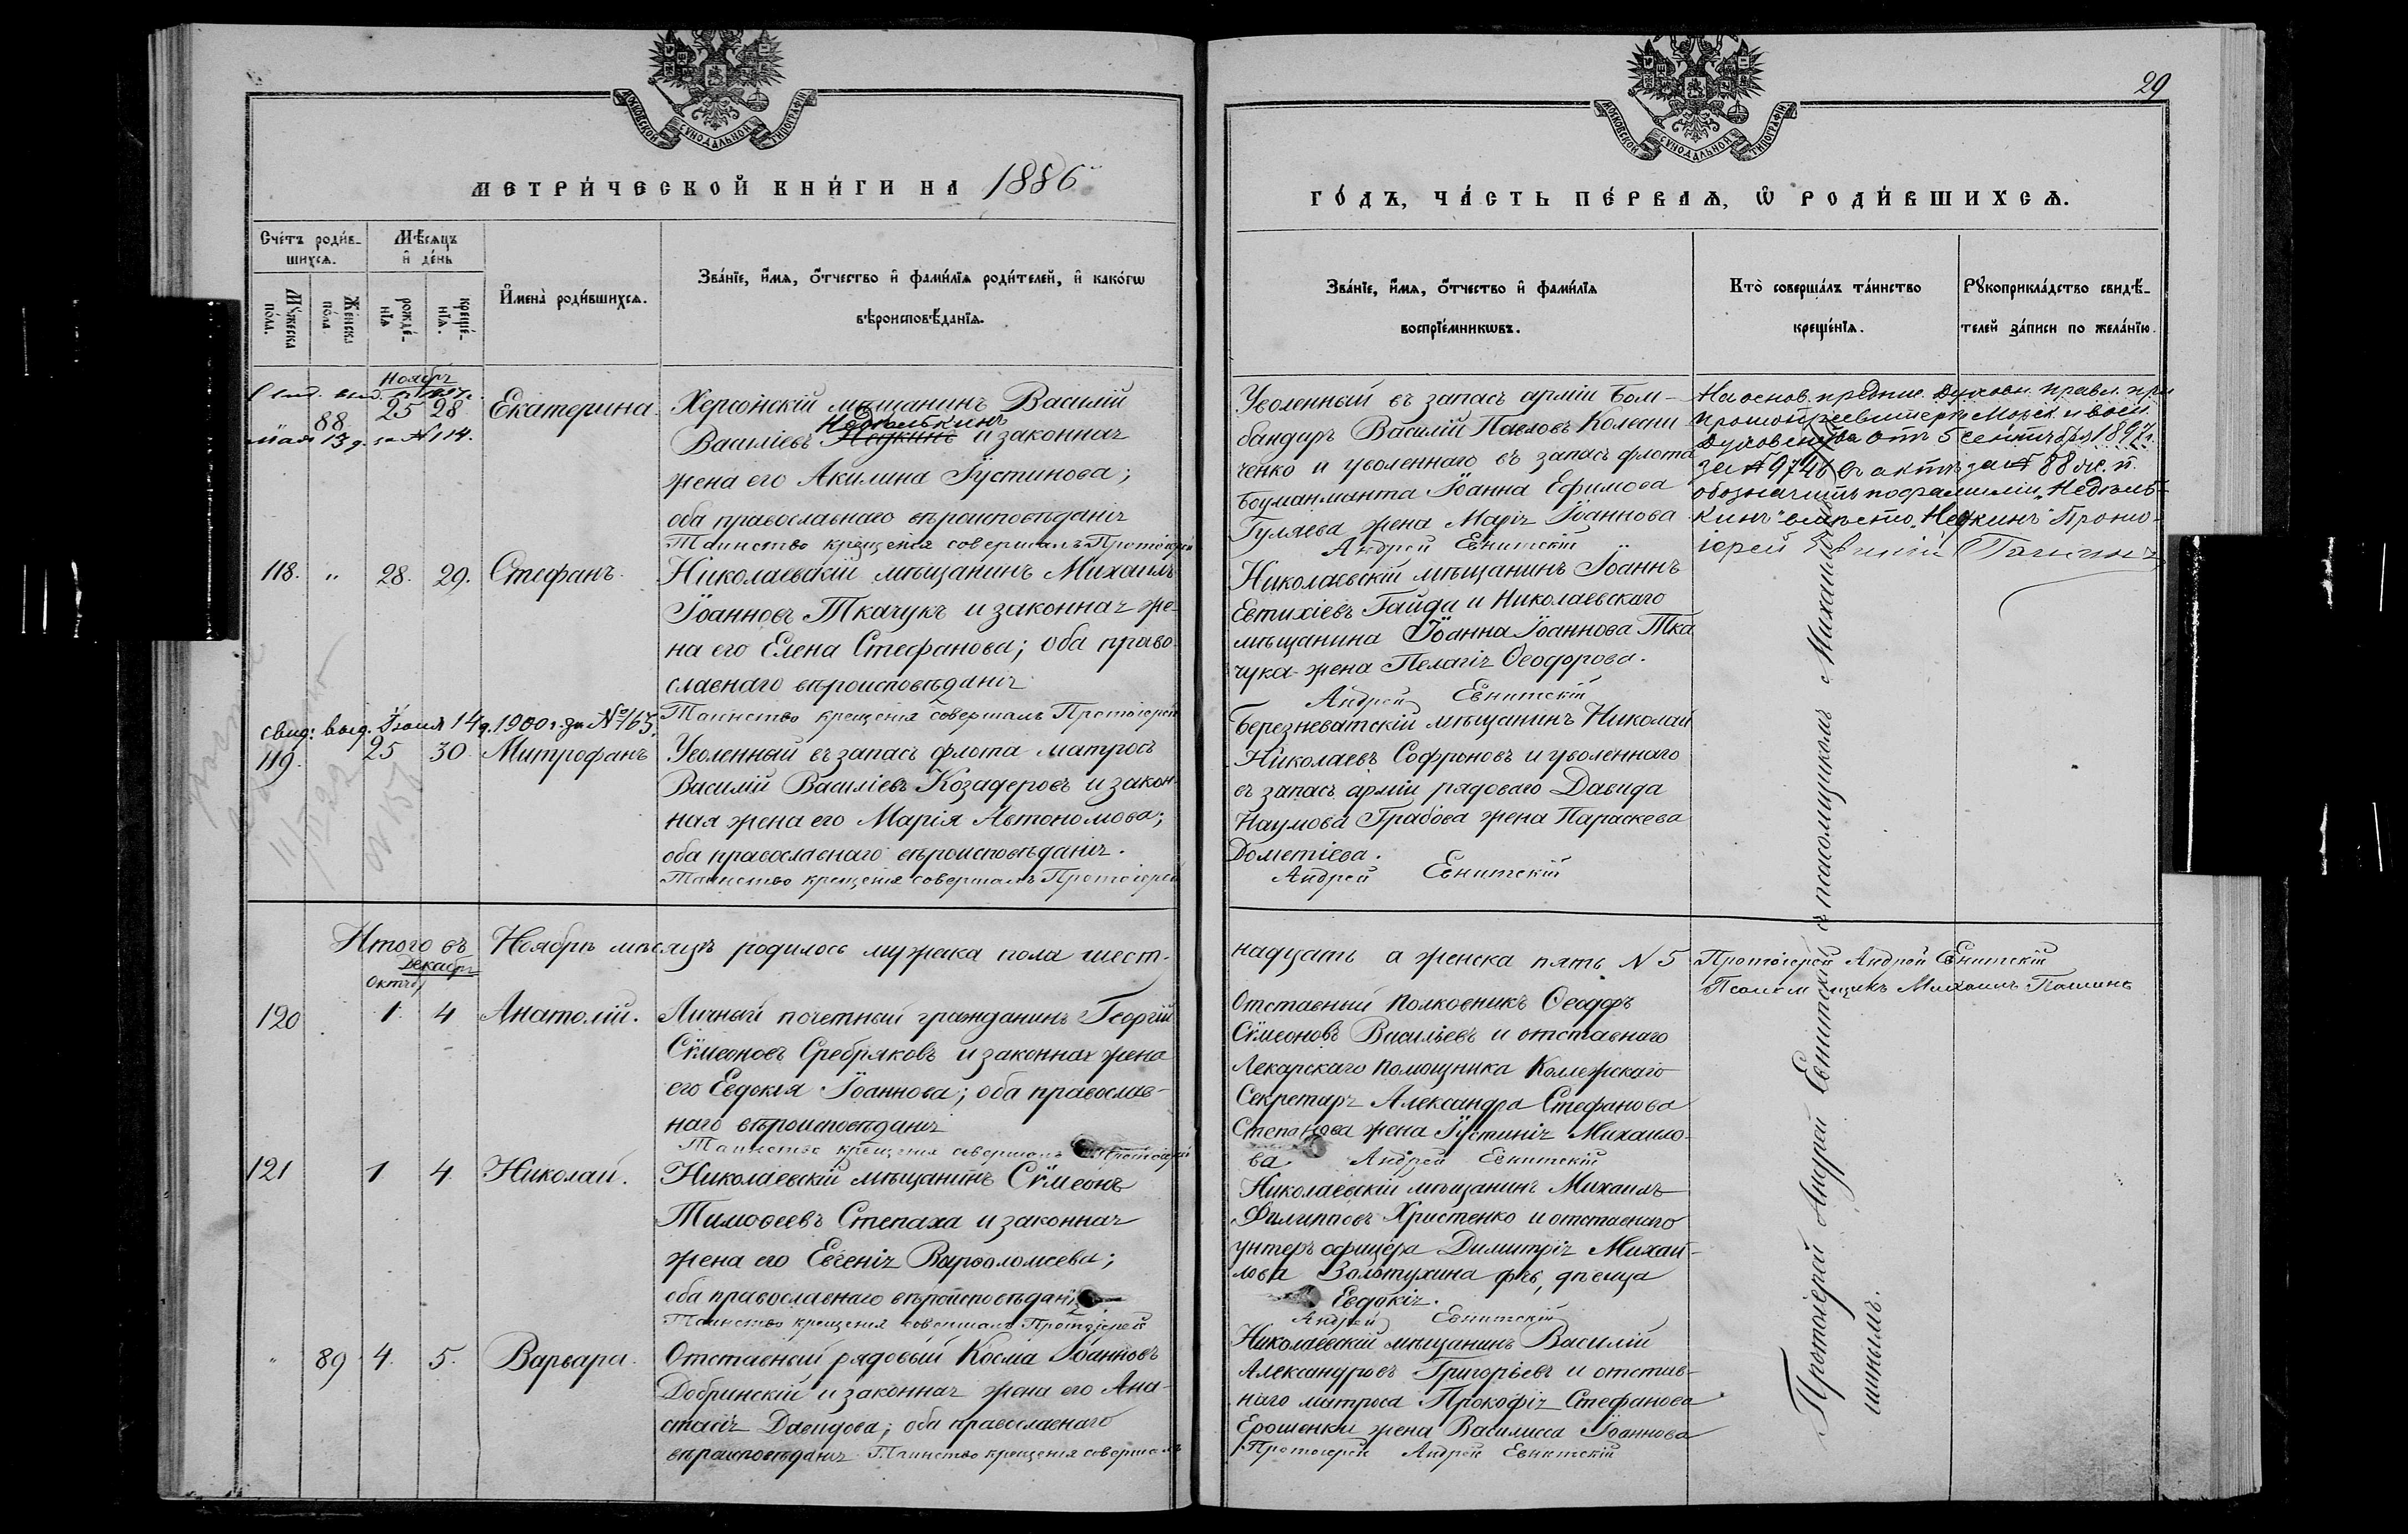 29
МОСКОВСКОЙ СѴНОДАЛЬНОЙ ТИПОГРАФІИ
МЕТРИ́ЧЕСКОЙ КНИ́ГИ НА 1886
Сче́тъ роди́в-
шихсѧ.
Мѣ́сѧцъ
и҆ де́нь
Мꙋ́жеска
по́ла.
Же́нска
по́ла
рожде́-
нїѧ
креще́-
нїѧ.
И҆мена̀ роди́вшихсѧ.
Зва́нїе, и҆́мѧ, ѻ҆́тчество и҆ фами́лїѧ роди́телей, и҆ како́гѡ
вѣроисповѣ́данїѧ.
Ноябрь
88 25 28 Екатерина.
мая 13 д. за № 114.
Херсонскій мѣщанинъ Василій
Недѣлькинъ
Василіевъ Недкинъ и законная
жена его Акилина Іустинова;
оба православнаго вѣроисповѣданія
Таинство крещенія совершалъ Протоіерей
118. " 28. 29. Стефанъ.
Николаевскій мѣщанинъ Михаилъ
Іоанновъ Ткачукъ и законная же-
на его Елена Стефанова; оба право-
славнаго вѣроисповѣданія
Таинство крещенія совершалъ Протоіерей
свид: выд. Іюня 14 д. 1900 г. за № 163.
119. 25 30. Митрофанъ
Уволенный въ запасъ флота матросъ
Василій Василіевъ Козадеровъ и закон-
ная жена его Марія Автономова;
оба православнаго вѣроисповѣданія.
Таинство крещенія совершалъ Протоіерей
Итого въ Ноябрѣ мѣсяцѣ родилось мужеска пола шест-
Декабрь
Октяб
120 1. 4 Анатолій.
Личный почетный гражданинъ Георгій
Сѵмеоновъ Сребряковъ и законная жена
его Евдокія Іоаннова; оба православ-
наго вѣроисповѣданія
Таинство крещенія совершалъ Протоіерей
121 1 4. Николай.
Николаевскій мѣщанинъ Сѵмеонъ
Тимоѳеевъ Степаха и законная
жена его Евгенія Варѳоломеева;
оба православнаго вѣроисповѣданія
Таинство крещенія совершалъ Протоіерей
" 89 4. 5. Варвара.
Отставный рядовый Косма Іоанновъ
Добринскій и законная жена его Ана-
стасія Давидова; оба православнаго
вѣроисповѣданія Таинство крещенія совершалъ
МОСКОВСКОЙ СѴНОДАЛЬНОЙ ТИПОГРАФІИ
ГО́ДЪ, ЧА́СТЬ ПЕ́РВАѦ, Ѽ РОДИ́ВШИХСѦ.
Зва́нїе, и҆́мѧ, ѻ҆́тчество и҆ фами́лїѧ
воспрїе́мникѡвъ.
Кто̀ соверша́лъ та́инство
креще́нїѧ.
Рꙋкоприкла́дство свидѣ́-
телей за́писи по жела́нїю.
Уволенный въ запасъ арміи Бом-
бандиръ Василій Павловъ Колесни-
ченко и уволеннаго въ запасъ флота
Боуманманта Іоанна Ефимова
Гуляева жена Марія Іоаннова
Андрей Евнитскій
На основ. предпис. Духовн. правл. при
Протопресвитерѣ Морск. и воен.
Духовенства отъ 5 сентября 1897 г.
за № 9746 въ актѣ за № 88 ж. п.
обозначить по фамиліи „Недѣль-
кинъ" вмѣсто „Недкинъ" Прото-
іерей
Николаевскій мѣщанинъ Іоаннъ
Евтихіевъ Гайда и Николаевскаго
мѣщанина Іоанна Іоаннова Тка-
чука жена Пелагія Ѳеодорова.
Андрей Евнитскій
Березневатскій мѣщанинъ Николай
Николаевъ Софроновъ и уволеннаго
въ запасъ арміи рядоваго Давида
Наумова Грабова жена Параскева
Дометіева.
Андрей Евнитскій
надцать а женска пять № 5
Протоіерей Андрей Евнитскій
Псаломщикъ Михаилъ Пашинъ
Отставный Полковникъ Ѳеодоръ
Сѵмеоновъ Васильевъ и отставнаго
Лекарскаго Помощника Коллежскаго
Секретаря Александра Стефанова
Степанова жена Іустинія Михаило-
ва Андрей Евнитскій
Николаевскій мѣщанинъ Михаилъ
Филипповъ Христенко и отставнаго
унтеръ офицера Димитрія Михай-
лова Золотухина дочь, дѣвица
Евдокія.
Андрей Евнитскій
Николаевскій мѣщанинъ Василій
Александровъ Григорьевъ и отстав-
наго матроса Прокофія Стефанова
Ерошенки жена Василисса Іоаннова
Протоіерей Андрей Евнитскій
Протоіерей Андрей Евнитскій съ псаломщикомъ Михаиломъ Па-
шинымъ.